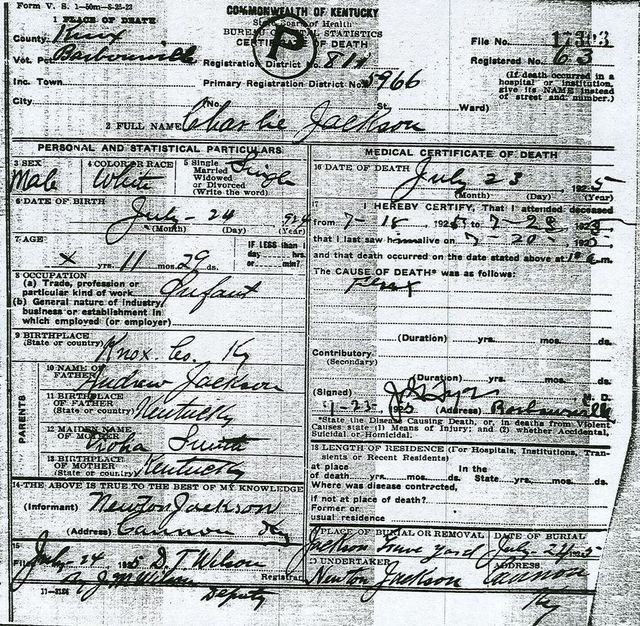 Form V. S. 1-50m-8-25-23
COMMONWEALTH OF KENTUCKY
State Board of Health
BUREAU OF VITAL STATISTICS
CERTIFICATE OF DEATH
P
1 PLACE OF DEATH
County Knox
Vot. Pct. Barbourville
Inc. Town
City
Registration District No. 811
Primary Registration District No. 5966
(No. St. Ward)
File No. 17
Registered No. 63
(If death occurred in a
hospital or institution,
give its NAME instead
of street and number.)
2 FULL NAME Charlie Jackson
PERSONAL AND STATISTICAL PARTICULARS
3 SEX
Male
4 COLOR OR RACE
White
5 Single
Married
Widowed
or Divorced
(Write the word)
Single
6 DATE OF BIRTH
July - 24 , 924
(Month) (Day) (Year)
7 AGE
x yrs. 11 mos. 29 ds.
IF LESS than 1
day hrs.
or min.?
8 OCCUPATION
(a) Trade, profession or
particular kind of work Infant
(b) General nature of industry
business or establishment in
which employed (or employer)
9 BIRTHPLACE
(State or country) Knox Co. Ky
PARENTS
10 NAME OF
FATHER Andrew Jackson
11 BIRTHPLACE
OF FATHER
(State or country) Kentucky
12 MAIDEN NAME
OF MOTHER Smith
13 BIRTHPLACE
OF MOTHER
(State or country) Kentucky
14 THE ABOVE IS TRUE TO THE BEST OF MY KNOWLEDGE
(Informant) Newton Jackson
(Address) Cannon Ky
15
Filed July 24 1925 D. T. Wilson
Registrar
By J M Wilson
Deputy
11-3106
MEDICAL CERTIFICATE OF DEATH
16 DATE OF DEATH
July 23 , 1925
(Month) (Day) (Year)
17 I HEREBY CERTIFY, That I attended deceased
from 7-18, 1925, to 7-23, 192
that I last saw h alive on 7-20-, 192
and that death occurred on the date stated above at m.
The CAUSE OF DEATH* was as follows:
Flux
(Duration) yrs. mos. ds.
Contributory
(Secondary)
(Duration) yrs. mos. ds.
(Signed) M. D.
7-23-, 1925 (Address) Barbourville
*State the Disease Causing Death, or, in deaths from Violent
Causes state (1) Means of Injury; and (2) whether Accidental,
Suicidal or Homicidal.
18 LENGTH OF RESIDENCE (For Hospitals, Institutions, Tran-
sients or Recent Residents)
at place In the
of death yrs. mos. ds. State yrs. mos. ds.
Where was disease contracted,
if not at place of death?
Former or
usual residence
19 PLACE OF BURIAL OR REMOVAL DATE OF BURIAL
Jackson Grave yard July - 24 1925
20 UNDERTAKER ADDRESS
Newton Jackson Cannon
Ky